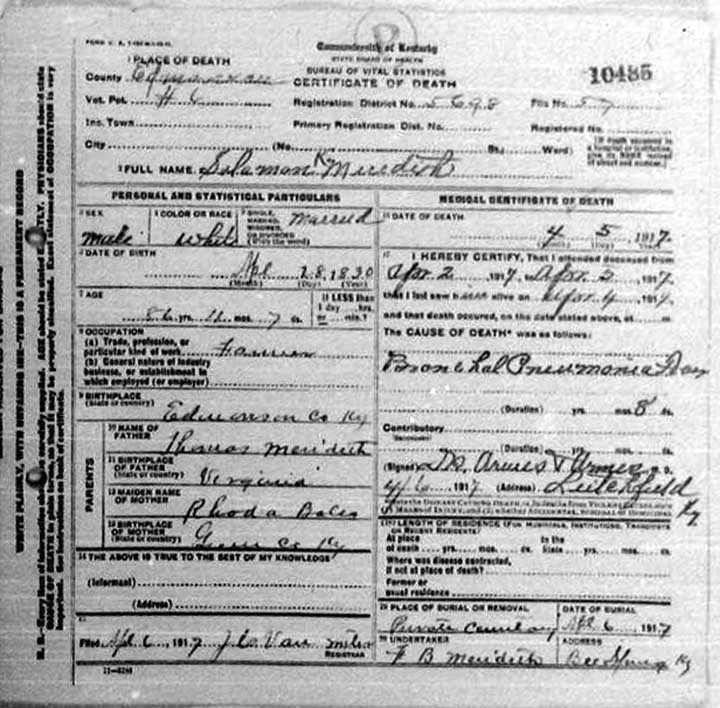 Commonwealth of Kentucky
STATE BOARD OF HEALTH
BUREAU OF VITAL STATISTICS
CERTIFICATE OF DEATH
10485
1 PLACE OF DEATH
County Edmonson
Vot. Pct. # 6
Registration District No. 5698 File No. 57
Inc. Town Primary Registration Dist. No. Registered No.
City (No. St.; Ward)
2 FULL NAME Solamon Ky Meredith
PERSONAL AND STATISTICAL PARTICULARS
3 SEX
male
4 COLOR OR RACE
white
5 SINGLE, MARRIED, WIDOWED, OR DIVORCED (Write the word)
married
6 DATE OF BIRTH
Apl. 28, 1830
(Month) (Day) (Year)
7 AGE
86 yrs. 11 mos. 7 ds.
If LESS than 1 day hrs. or min.?
8 OCCUPATION
(a) Trade, profession, or particular kind of work Farmer
(b) General nature of industry business, or establishment in which employed (or employer)
9 BIRTHPLACE
(State or country)
Edmonson Co Ky
PARENTS
10 NAME OF FATHER
Thomas Meridith
11 BIRTHPLACE OF FATHER
(State or country)
Virginia
12 MAIDEN NAME OF MOTHER
Rhoda
13 BIRTHPLACE OF MOTHER
(State or country)
Co Ky
14 THE ABOVE IS TRUE TO THE BEST OF MY KNOWLEDGE
(Informant)
(Address)
15
Filed Apl. 6, 1917
REGISTRAR
11-6184
MEDICAL CERTIFICATE OF DEATH
16 DATE OF DEATH
4 5, 1917
17 I HEREBY CERTIFY, That I attended deceased from
Apr. 2, 1917, to Apr. 2, 1917,
that I last saw h alive on Apr. 4, 1917,
and that death occurred, on the date stated above, at m.
The CAUSE OF DEATH* was as follows:
Bronchal Pneumonia
(Duration) yrs. mos. 8 ds.
Contributory
(Secondary)
(Duration) yrs. mos. ds.
(Signed) M. D.
6, 1917 (Address) Leitchfield Ky
18 LENGTH OF RESIDENCE (FOR HOSPITALS, INSTITUTIONS, TRANSIENTS OR RECENT RESIDENTS)
At place of death yrs. mos. ds. In the State yrs. mos. ds.
Where was disease contracted, If not at place of death?
Former or usual residence
19 PLACE OF BURIAL OR REMOVAL
Private Cemetary
DATE OF BURIAL
Apl. 6, 1917
20 UNDERTAKER
F B Meridith
ADDRESS
Bee Spring Ky